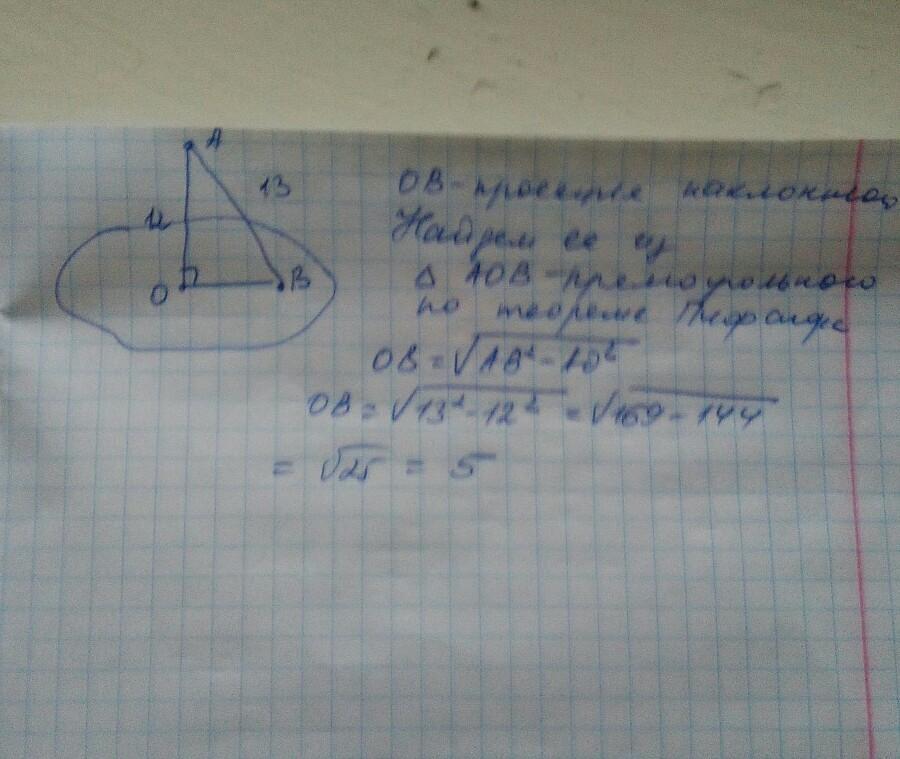 A
13
12
O
B
OB - проекция наклонной
Найдем ее из
Δ AOB - прямоугольного
по теореме Пифагора
OB = √AB² - AO²
OB = √13² - 12² = √169 - 144
= √25 = 5